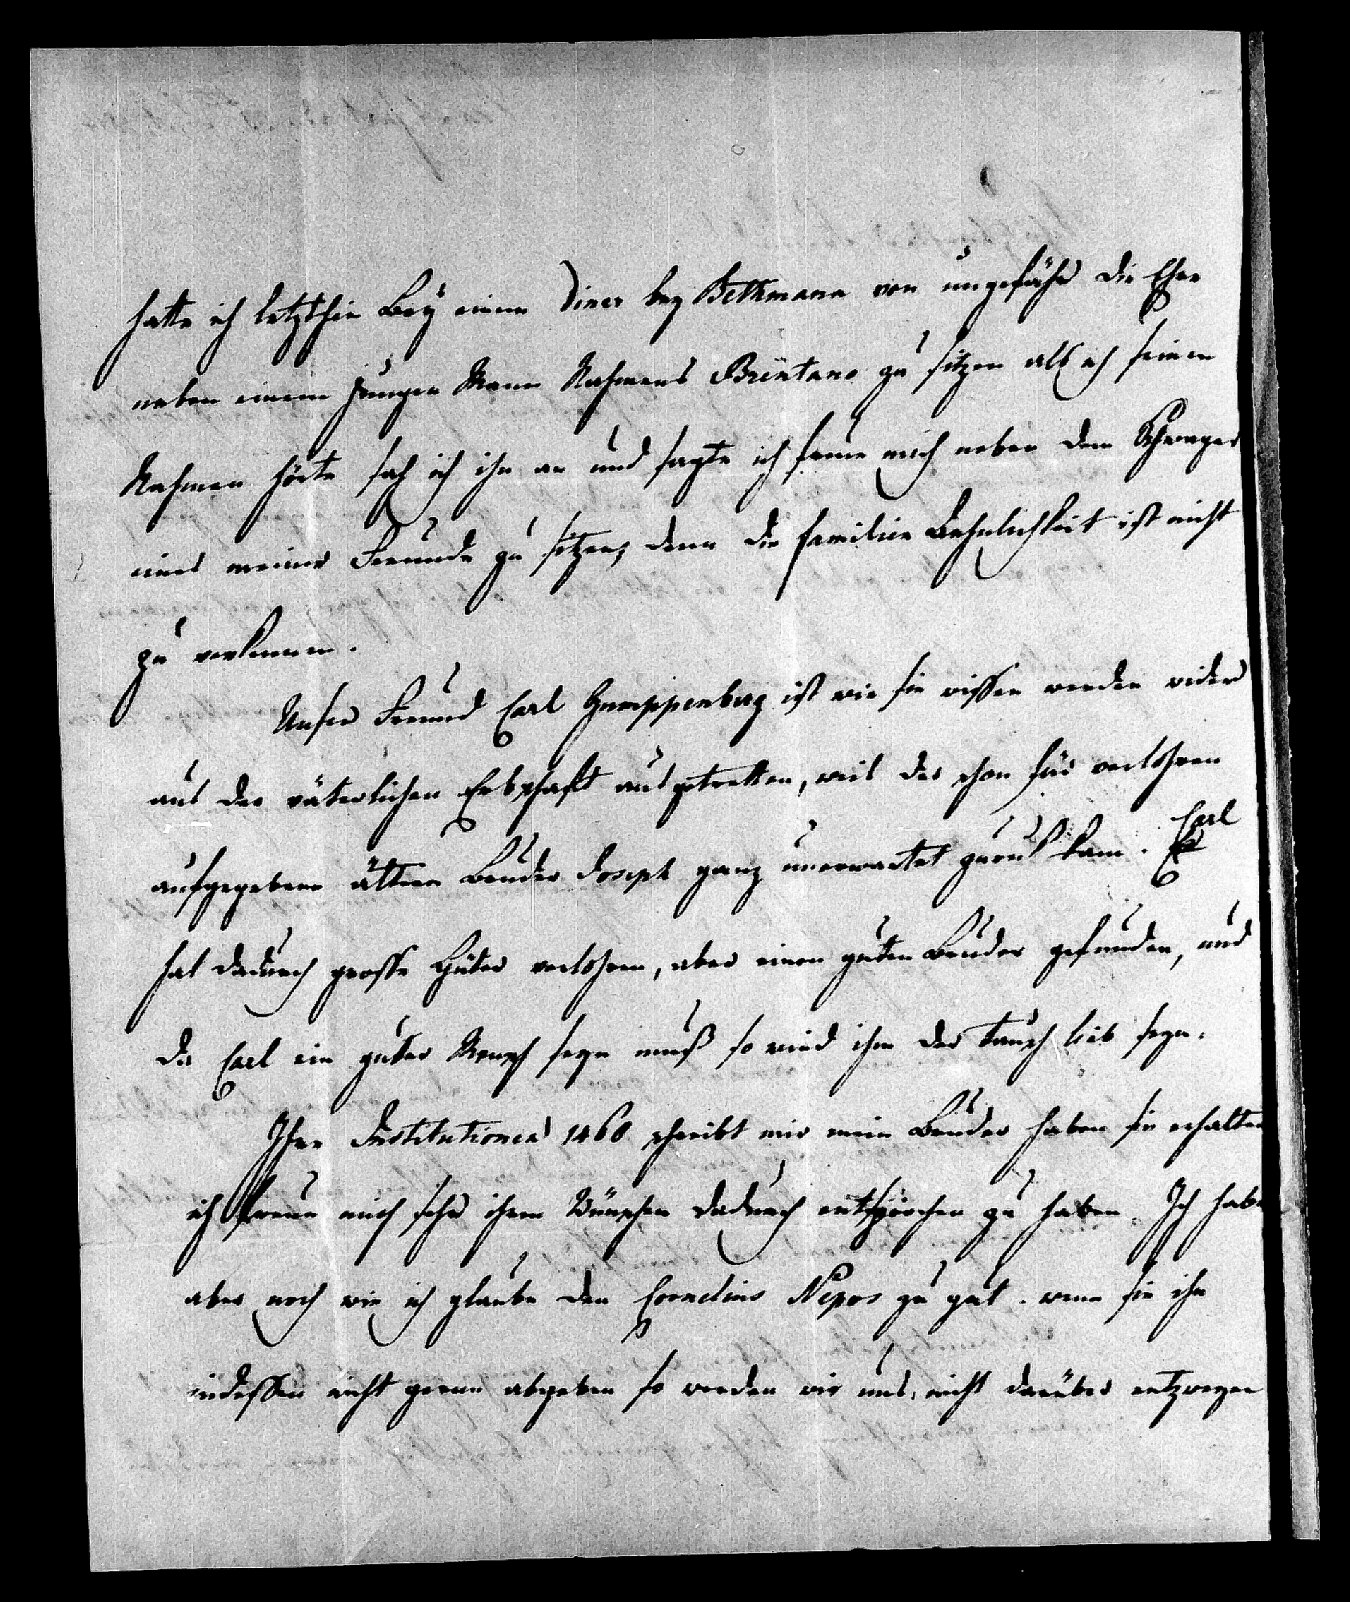 hatte ich letzthin bey einem Diner bey Bethmann von ungefähr die Ehre
neben einem jungen Mann Nahmens Brentano zu sitzen als ich seinen
Nahmen hörte sah ich ihn an und sagte ich freue mich neben dem Schwager
eines meiner Freunde zu sitzen, denn die familien Aehnlichkeit ist nicht
zu verkennen.
Unser Freund Carl Gumppenberg ist wie sie wissen werden wider
aus der väterlichen Erbschaft ausgetretten, weil der schon für verlohren
aufgegebene ältere Bruder Joseph ganz unerwartet zurük kam. Carl
hat dadurch grosse Güter verlohren, aber einen guten Bruder gefunden, und
da Carl ein guter Mensch seyn muß so wird ihm der Tausch lieb seyn.
Ihre Institutionen 1460 schreibt mir mein Bruder haben sie erhalten
ich freue mich sehr ihren Wünschen dadurch entsprochen zu haben. Ich habe
aber noch wie ich glaube den Cornelius Nepos zu gut. wenn sie ihn
indessen nicht gerne abgeben so werden wir uns nicht darüber entzweyen